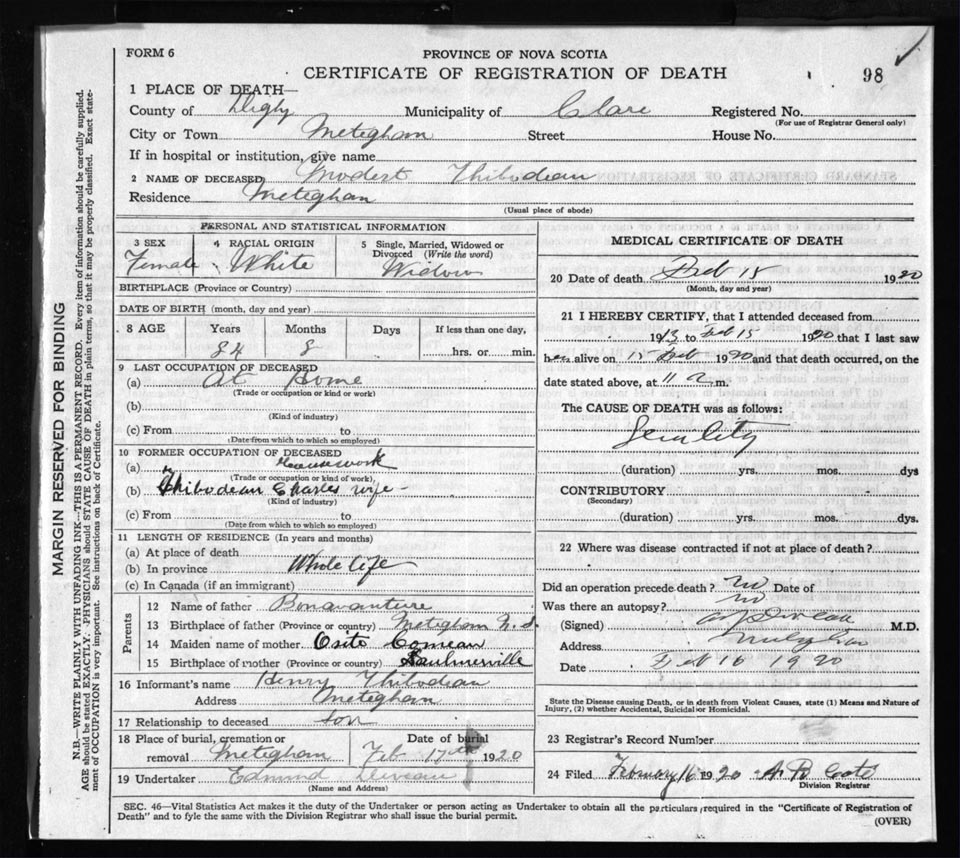 FORM 6
PROVINCE OF NOVA SCOTIA
CERTIFICATE OF REGISTRATION OF DEATH
98
1 PLACE OF DEATH—
County of Digby Municipality of Clare Registered No.
(For use of Registrar General only)
City or Town Meteghan Street House No.
If in hospital or institution, give name
2 NAME OF DECEASED Modest Thibodeau
Residence Meteghan
(Usual place of abode)
PERSONAL AND STATISTICAL INFORMATION
3 SEX 4 RACIAL ORIGIN 5 Single, Married, Widowed or
Divorced (Write the word)
Female White Widow
BIRTHPLACE (Province or Country)
DATE OF BIRTH (month, day and year)
8 AGE Years Months Days If less than one day,
84 8 hrs. or min.
9 LAST OCCUPATION OF DECEASED
(a) At Home
(Trade or occupation or kind or work)
(b)
(Kind of industry)
(c) From to
(Date from which to which so employed)
10 FORMER OCCUPATION OF DECEASED
(a) Housework
(Trade or occupation or kind of work),
(b) Thibodeau Charles wife
(Kind of industry)
(c) From to
(Date from which to which so employed)
11 LENGTH OF RESIDENCE (In years and months)
(a) At place of death
(b) In province Whole life
(c) In Canada (if an immigrant)
Parents
12 Name of father Bonavanture
13 Birthplace of father (Province or country) Meteghan N.S.
14 Maiden name of mother Osite Comeau
15 Birthplace of mother (Province or country) Saulnierville
16 Informant's name Henry Thibodeau
Address Meteghan
17 Relationship to deceased son
18 Place of burial, cremation or Date of burial
removal Meteghan Feb 17th 1920
19 Undertaker Edmund Deveau
(Name and Address)
MEDICAL CERTIFICATE OF DEATH
20 Date of death Feb 15 1920
(Month, day and year)
21 I HEREBY CERTIFY, that I attended deceased from
19 to Feb 15 1920 that I last saw
her alive on 15 Feb 1920 and that death occurred, on the
date stated above, at 11 a m.
The CAUSE OF DEATH was as follows:
Senility
(duration) yrs. mos. dys
CONTRIBUTORY
(Secondary)
(duration) yrs. mos. dys.
22 Where was disease contracted if not at place of death?
Did an operation precede death? no Date of
Was there an autopsy? no
(Signed) M.D.
Address
Date Feb 16 1920
State the Disease causing Death, or in death from Violent Causes, state (1) Means and Nature of
Injury, (2) whether Accidental, Suicidal or Homicidal.
23 Registrar's Record Number
24 Filed February 16 1920
Division Registrar
SEC. 46—Vital Statistics Act makes it the duty of the Undertaker or person acting as Undertaker to obtain all the particulars required in the "Certificate of Registration of
Death" and to fyle the same with the Division Registrar who shall issue the burial permit.
(OVER)
MARGIN RESERVED FOR BINDING
N.B.—WRITE PLAINLY WITH UNFADING INK—THIS IS A PERMANENT RECORD. Every item of information should be carefully supplied.
AGE should be stated EXACTLY. PHYSICIANS should STATE CAUSE OF DEATH in plain terms, so that it may be properly classified. Exact state-
ment of OCCUPATION is very important. See instructions on back of Certificate.